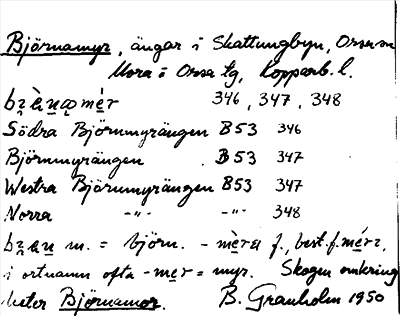 Björnamyr, ängar i Skattungbyn, Orsa sn
Mora o Orsa tg, Kopparb. l.
346, 347, 348
Södra Björnmyrängen B53 346
Björnmyrängen B53 347
Westra Björnmyrängen B53 347
Norra -"- -"- 348
m. = björn. - f., best. f.
i ortnamn ofta - mer = myr. Skogen omkring
heter Björnamor. B. Granholm 1950